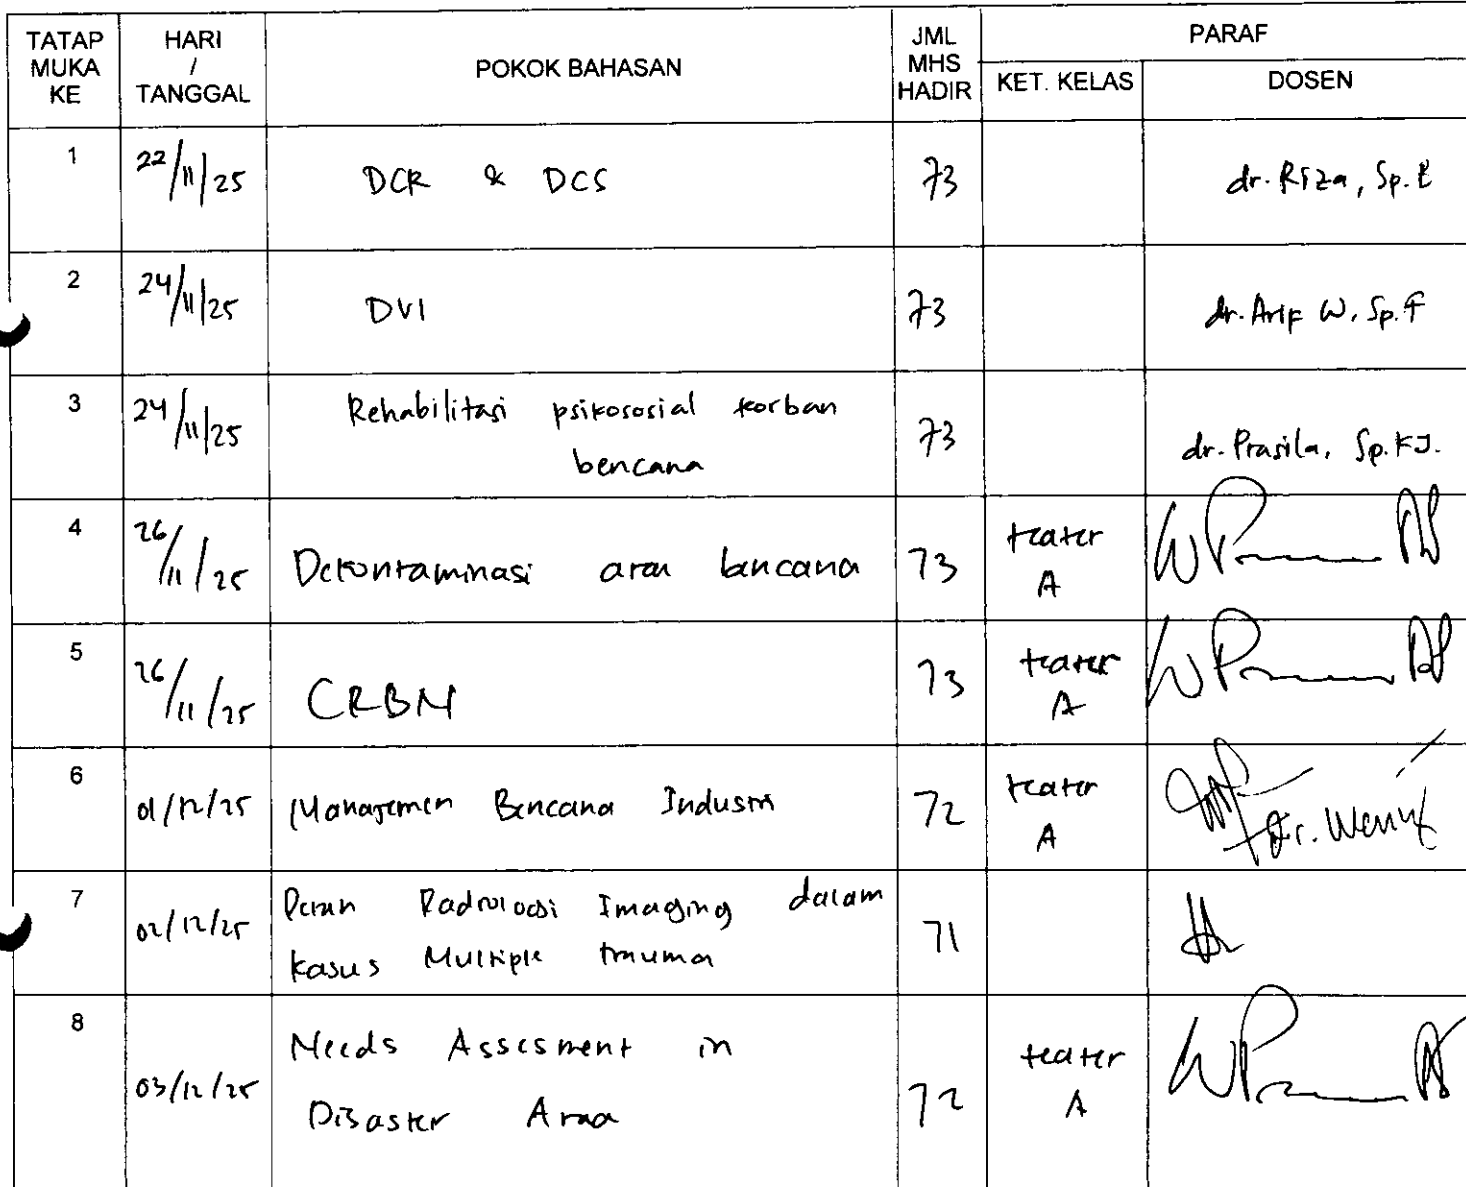 TATAP MUKA KE
HARI / TANGGAL
POKOK BAHASAN
JML MHS HADIR
PARAF
KET. KELAS
DOSEN
1 22/11/25 DCR & DCS 73 dr. Riza, Sp.B
2 24/11/25 DVI 73 dr. Arif W, Sp.F
3 24/11/25 Rehabilitasi psikososial korban 73 dr. Prasila, Sp.KJ.
bencana
4 26/11/25 Dekontaminasi area bencana 73 teater
A
5 26/11/25 CRBN 73 teater
A
6 01/12/25 Manajemen Bencana Industri 72 teater
A
7 02/12/25 Peran Radiologi Imaging dalam 71
kasus Multiple trauma
8 03/12/25 Needs Assesment in 72 teater
Disaster Area A